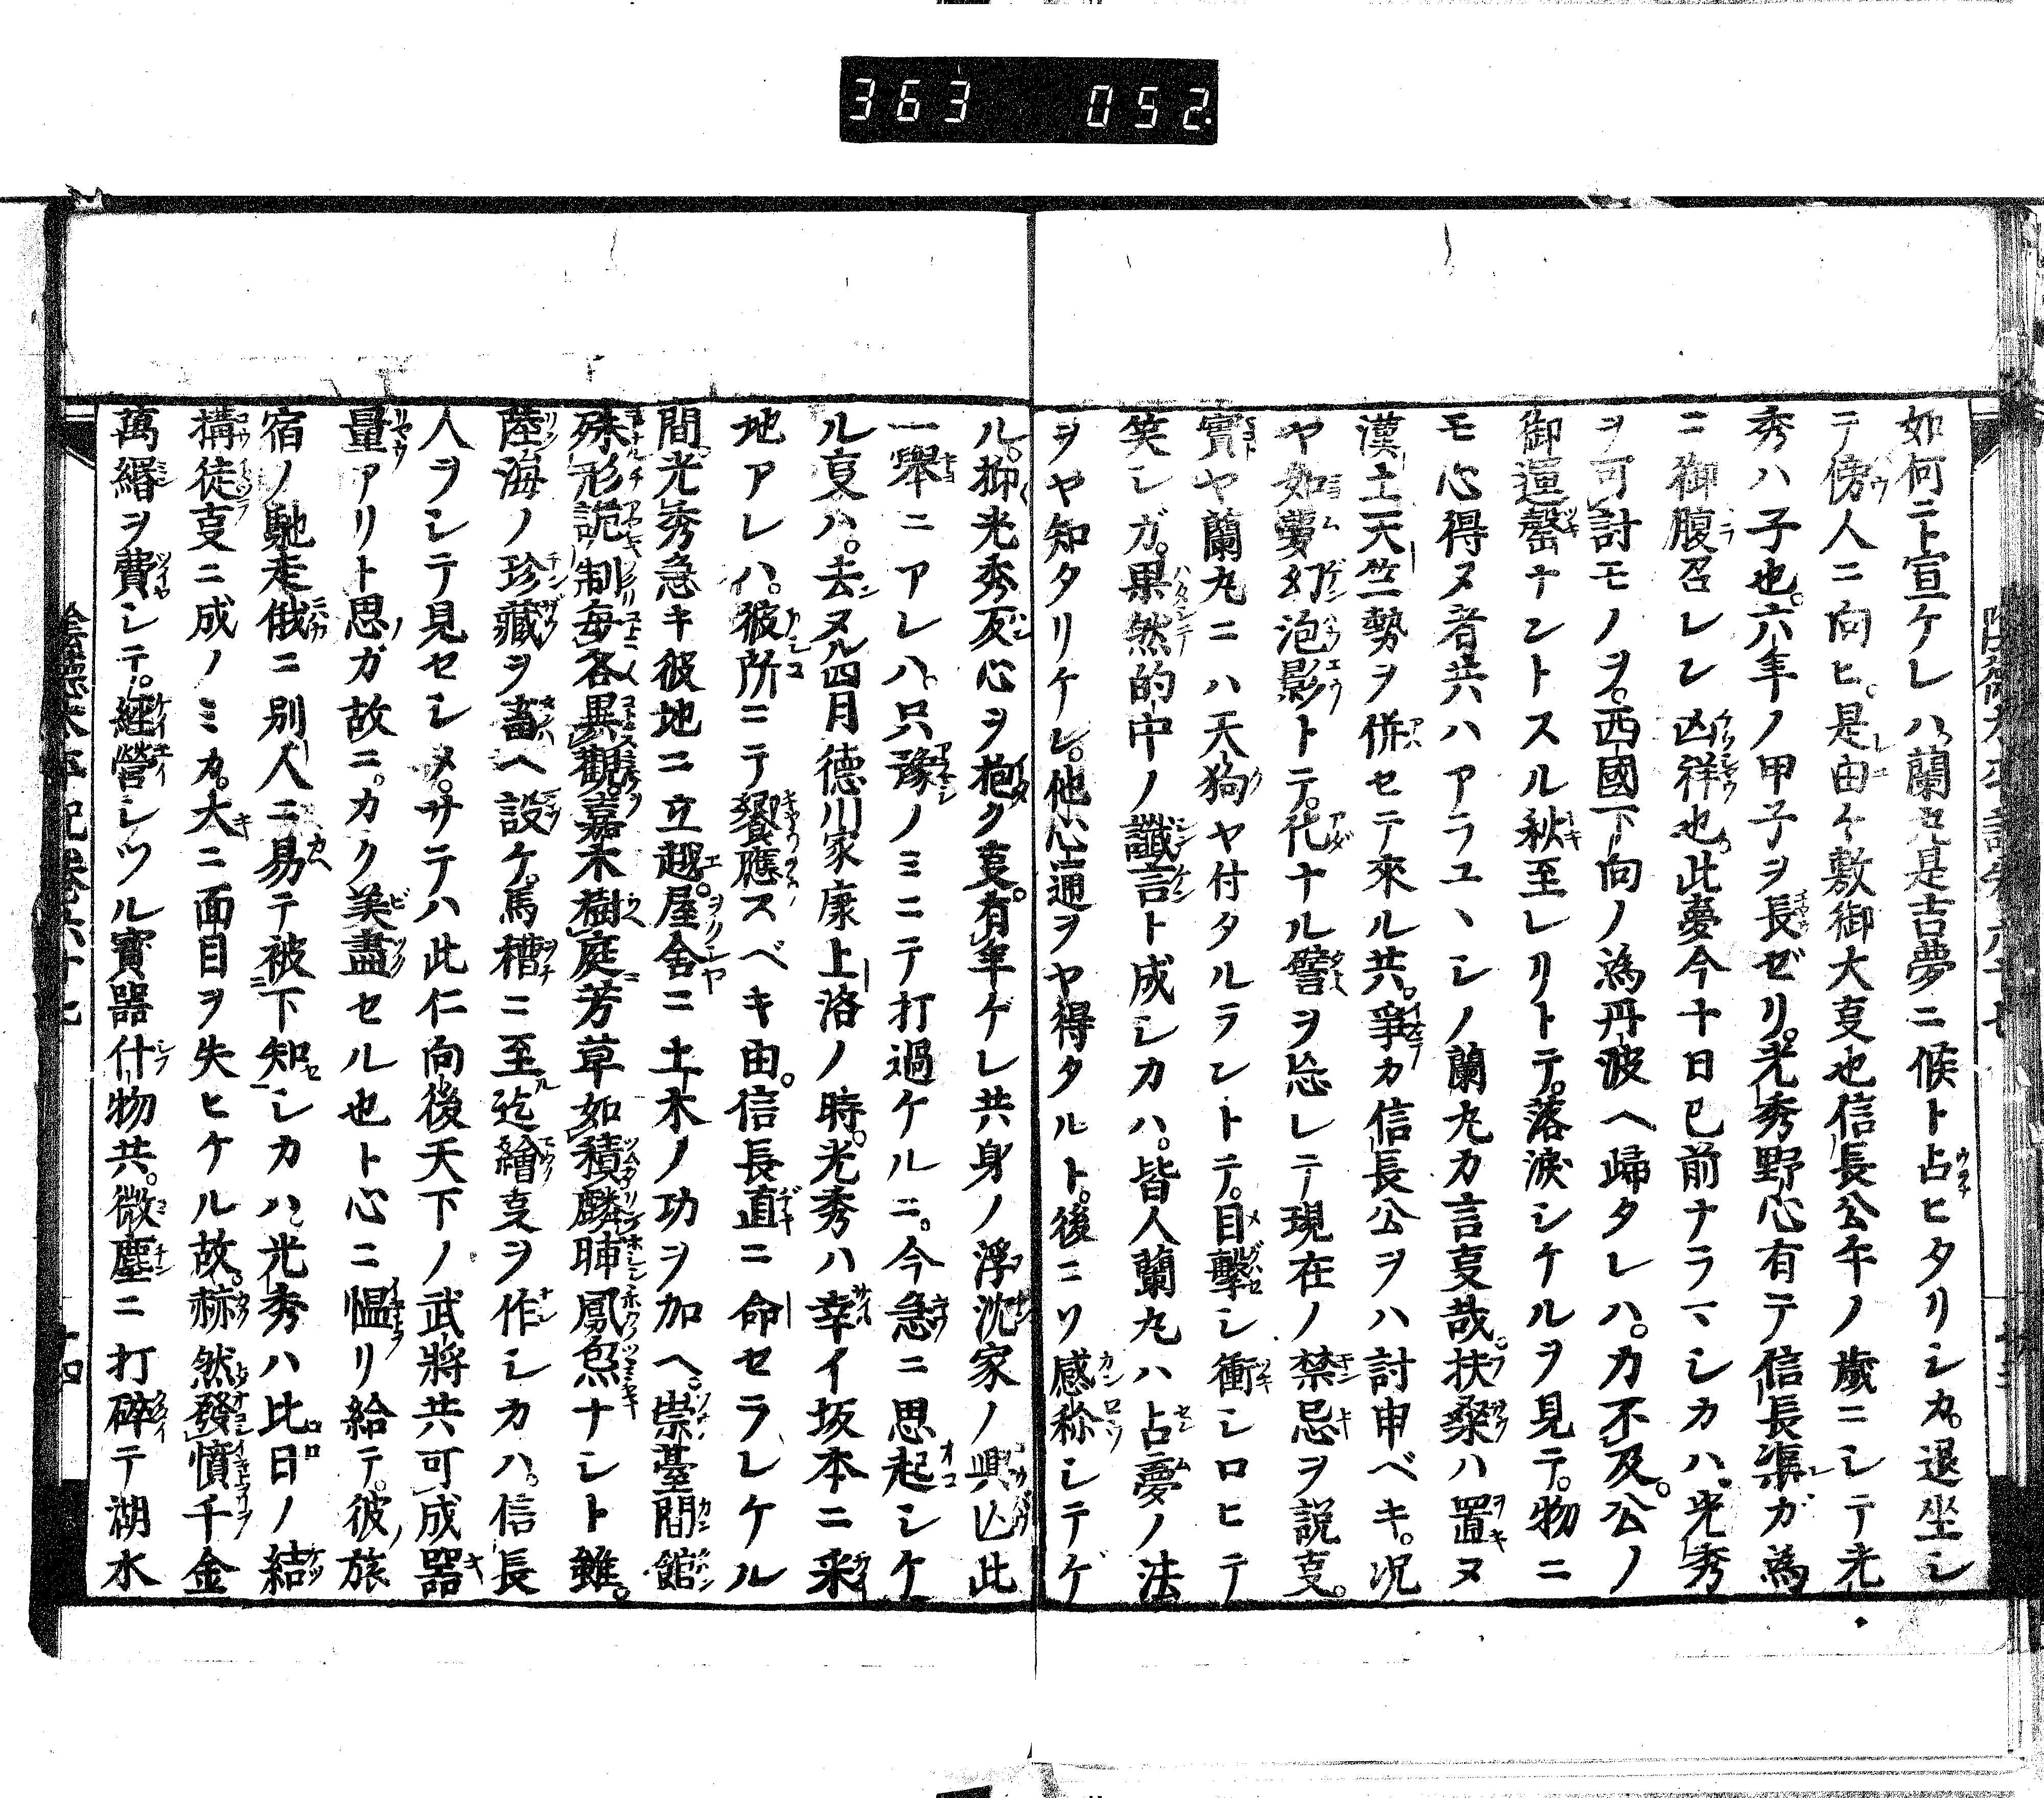 363 052
如何ニト宣ケレハ蘭丸是吉夢ニ候ト占ヒタリシカ。退坐シ
テ傍人ニ向ヒ。是由々敷御大叓也信長公午ノ歳ニシテ光
秀ハ子也。六年ノ甲子ヲ長ゼリ。光秀野心有テ信長渠ガ為
ニ御腹召レン凶祥也。此夢今十日已前ナラマシカハ。光秀
ヲ可討モノヲ。西國下向ノ為丹波ヘ歸タレハ。力不及。公ノ
御運罄ナントスル秋至レリトテ。落涙シケルヲ見テ。物ニ
モ心得ヌ者共ハアラユヽシノ蘭丸カ言叓哉。扶桑ハ置ヌ
漢土天竺勢ヲ併セテ來ル共。爭カ信長公ヲハ討申ベキ。况
ヤ如夢幻泡影トテ。化ナル譬ヲ忘レテ現在ノ禁忌ヲ説叓。
實ヤ蘭丸ニハ天狗ヤ付タルラントテ。目擊シ衝シロヒテ
笑シガ。果然的中ノ讖言ト成シカハ。皆人蘭丸ハ占夢ノ法
ヲヤ知タリケン。他心通ヲヤ得タルト。後ニソ感称シテゲ
ル。抑光秀反心ヲ抱ク叓。有年ゲレ共身ノ浮沈家ノ興亡此
一舉ニアレハ。只豫ノミニテ打過ケルニ。今急ニ思起シケ
ル叓ハ。去ヌル四月德川家康上洛ノ時。光秀ハ幸イ坂本ニ采
地アレハ。彼所ニテ饗應スベキ由。信長直ニ命セラレケル
間。光秀急キ彼地ニ立越。屋舍ニ土木ノ功ヲ加ヘ。崇臺間館
殊形詭制每各異觀。嘉木樹庭芳草如積麟𦠆鳳炰ナシト雖。
陸海ノ珍藏ヲ畜ヘ設ケ。馬槽ニ至迄繪叓ヲ作シカハ。信長
人ヲシテ見セシメ。サテハ此仁向後天下ノ武將共可成器
量アリト思ガ故ニ。カク美盡セル也ト心ニ慍リ給テ。彼旅
宿ノ馳走俄ニ別人ニ易テ被下知シカハ。光秀ハ比日ノ結
搆徒叓ニ成ノミカ。大ニ面目ヲ失ヒケル故。赫然發憤千金
萬緡ヲ費シテ。經營シツル寳器什物共。微塵ニ打碎テ湖水
陰德太平記卷六十七
十四